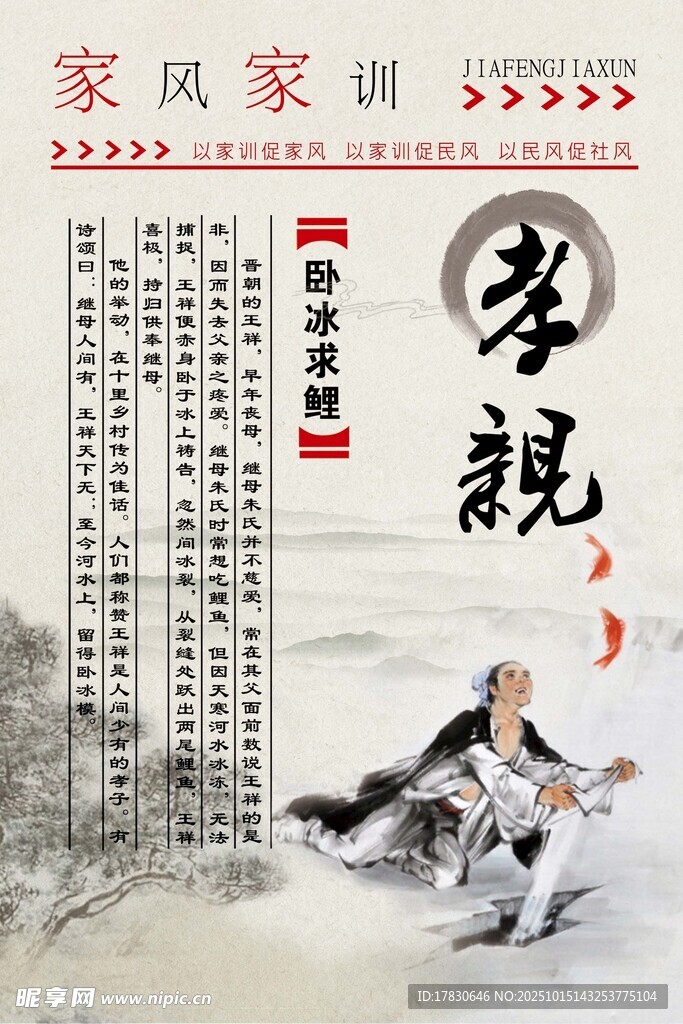 家风家训
JIAFENGJIAXUN
以家训促家风 以家训促民风 以民风促社风
孝親
【卧冰求鲤】
晋朝的王祥，早年丧母，继母朱氏并不慈爱，常在其父面前数说王祥的是
非，因而失去父亲之疼爱。继母朱氏时常想吃鲤鱼，但因天寒河水冰冻，无法
捕捉，王祥便赤身卧于冰上祷告，忽然间冰裂，从裂缝处跃出两尾鲤鱼，王祥
喜极，持归供奉继母。
他的举动，在十里乡村传为佳话。人们都称赞王祥是人间少有的孝子。有
诗颂曰：继母人间有，王祥天下无；至今河水上，留得卧冰模。
昵享网 www.nipic.cn
ID:17830646 NO:20251015143253775104